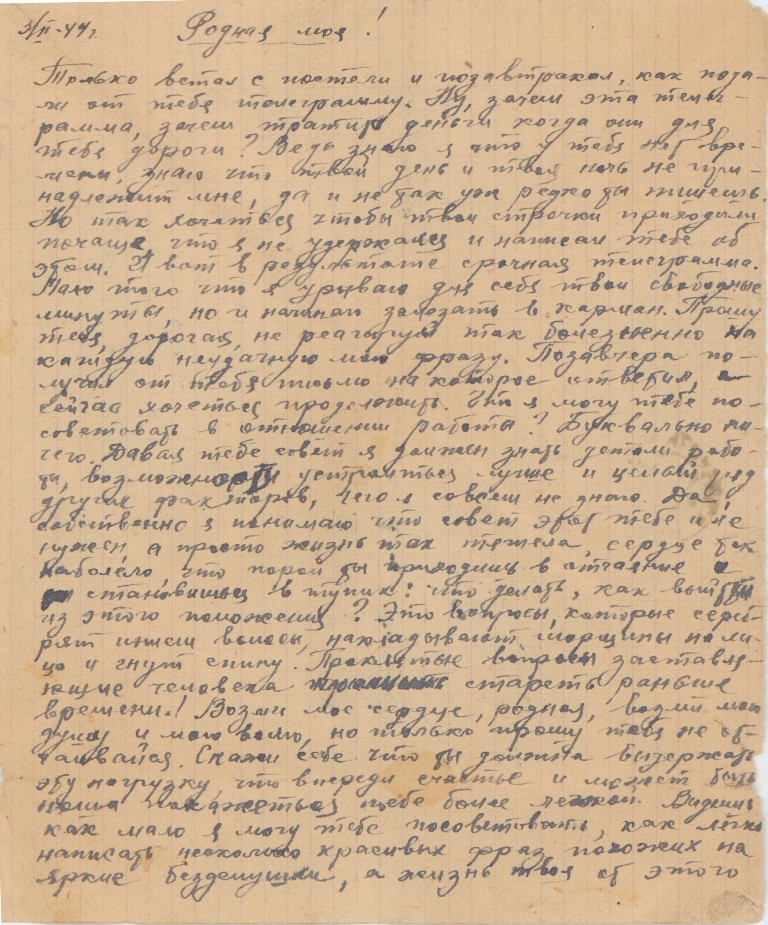 3/II-44г. Родная моя!
Только встал с постели и позавтракал, как пода-
ли от тебя телеграмму. Ну, зачем эта телег-
рамма, зачем тратить деньги когда они для
тебя дороги? Ведь знаю я что у тебя нет вре-
мени, знаю что твой день и твоя ночь не при-
надлежит мне, да и не так уж редко ты пишешь.
Но так хочеться чтобы твои строчки приходили
почаще, что я не удержался и написал тебе об
этом. И вот в результате срочная телеграмма.
Мало того что я урываю для себя твои свободные
минуты, но и начинаю залезать в карман. Прошу
тебя, дорогая, не реагируй так болезненно на
каждую неудачную мою фразу. Позавчера по-
лучил от тебя письмо на которое ответил, а
сейчас хочеться продолжить. Что я могу тебе по-
советовать в отношении работы? Буквально ни-
чего. Давая тебе совет я должен знать детали рабо-
ты, возможности устроиться лучше и целый ряд
других факторов, чего я совсем не знаю. Да,
собственно я понимаю что совет этот тебе и не
нужен, а просто жизнь так тяжела, сердце так
наболело, что порой ты приходишь в отчаяние и
становишься в тупик: что делать, как выйти
из этого положения? Это вопросы, которые сереб-
рят инеем волосы, накладывают морщины на ли-
цо и гнут спину. Проклятые вопросы заставля-
ющие человека стареть раньше
времени! Возми мое сердце, родная, возми мою
душу и мою волю, но только прошу тебя не от-
чаивайся. Скажи себе что ты должна выдержать
эту нагрузку, что впереди счастье и может быть
ноша покажеться тебе более легкой. Видишь
как мало я могу тебе посоветовать, как легко
написать несколько красивых фраз похожих на
яркие безделушки, а жизнь твоя от этого